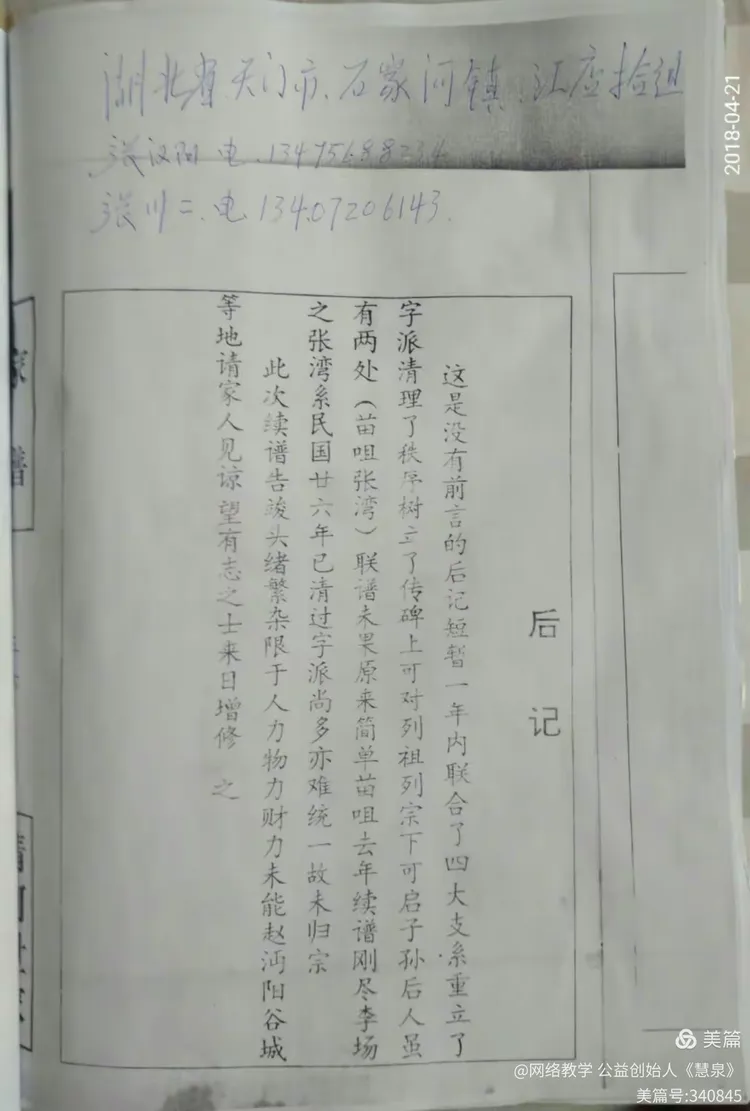 湖北省天门市、石家河镇、江应拾组
张汉阳 电.13475688234
张川二、电13407206143.
2018-04-21
后记
这是没有前言的后记短暂一年内联合了四大支系重立了
字派清理了秩序树立了传碑上可对列祖列宗下可启子孙后人虽
有两处（苗咀张湾）联谱未果原来简单苗咀去年续谱刚尽李场
之张湾系民国廿六年已清过字派尚多亦难统一故未归宗
此次续谱告竣头绪繁杂限于人力物力财力未能赵沔阳谷城
等地请家人见谅望有志之士来日增修之
家谱
清河世家
美篇
@网络教学 公益创始人《慧泉》
美篇号:340845